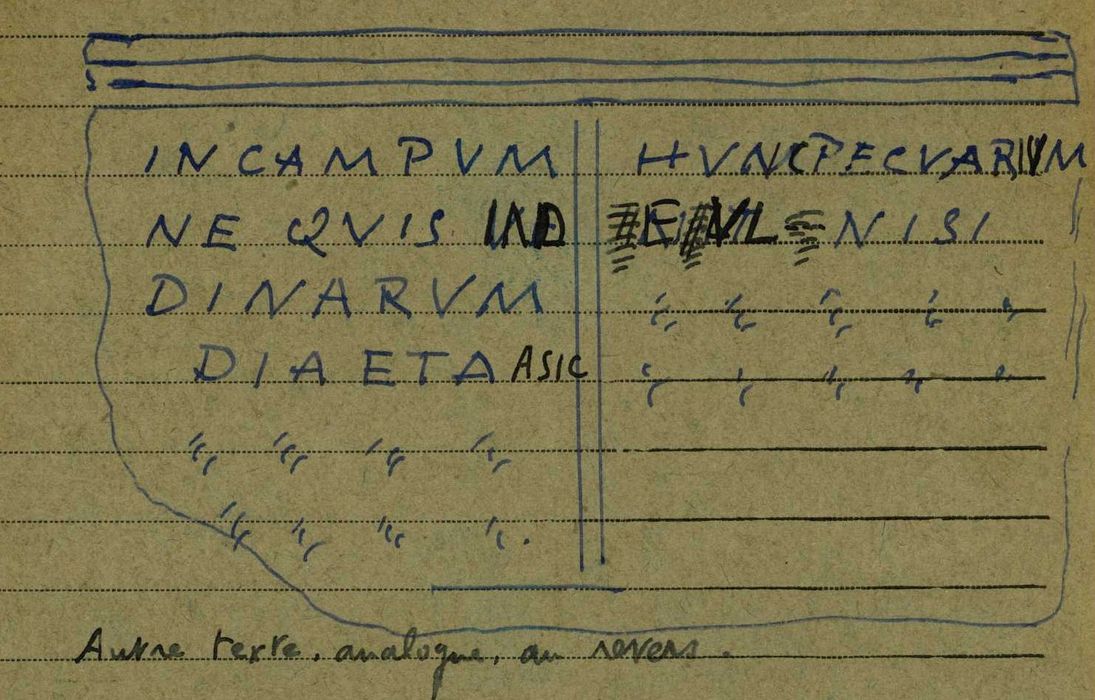 INCAMPVM HVNCPECVARIVM
NE QVIS IND NISI
DINARVM
DIAETA ASIC
Autre texte, analogue, au revers.